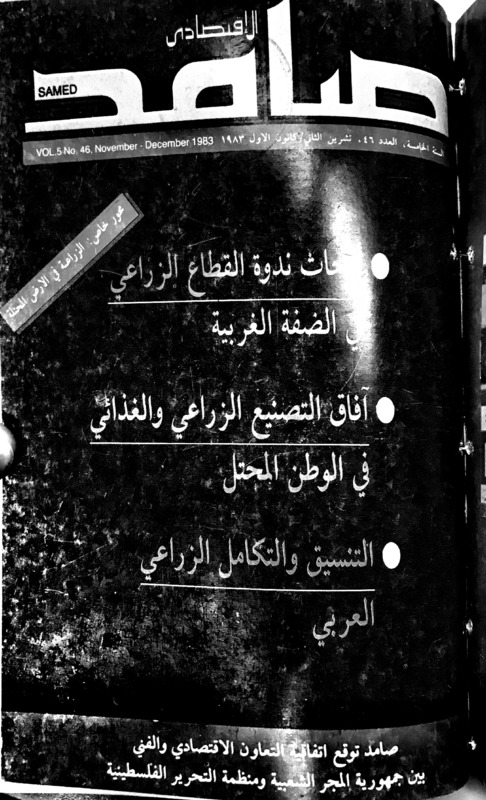 الإقتصادي
صامد
SAMED
السنة الخامسة، العدد ٤٦، تشرين الثاني/كانون الاول ١٩٨٣ VOL.5 No. 46, November - December 1983
محور خاص: الزراعة في الارض المحتلة
ندوة القطاع الزراعي
الضفة الغربية
آفاق التصنيع الزراعي والغذائي
في الوطن المحتل
التنسيق والتكامل الزراعي
العربي
صامد توقع اتفاقية التعاون الاقتصادي والفني
بين جمهورية المجر الشعبية ومنظمة التحرير الفلسطينية